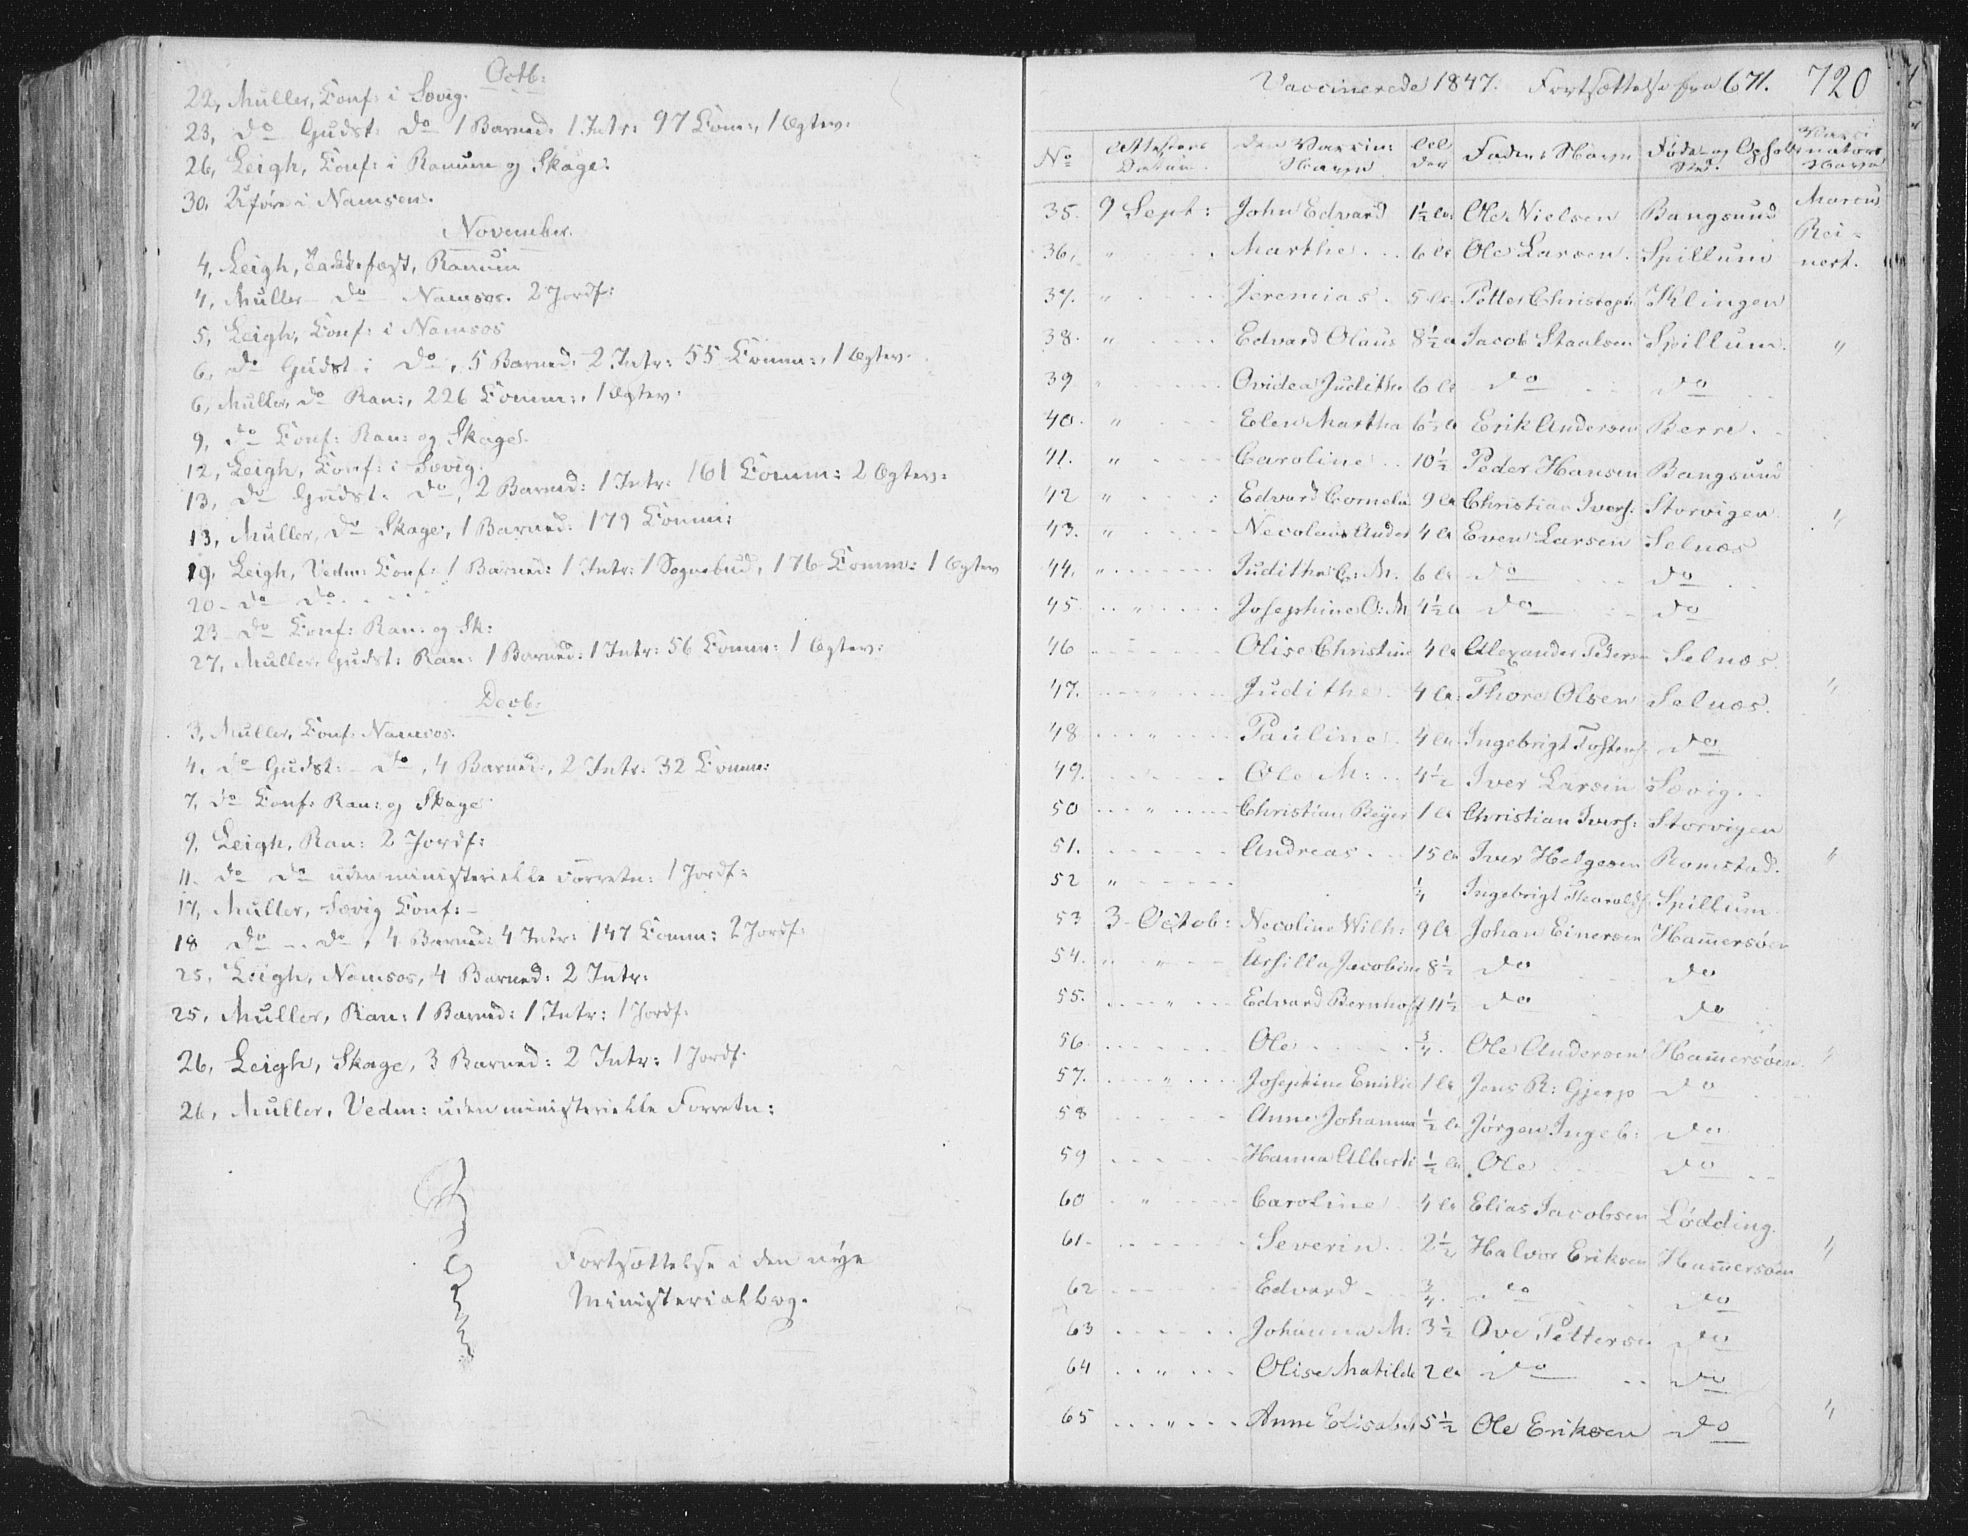 Octb:
22, Müller, Conf: i Sævig.
23, do Gudst: do 1 Barned: 1 Intr: 97 Com:, 1 Ægtev:
26, Leigh, Conf: i Ranum og Skage:
30, Ufør i Namsen.
November.
4, Leigh, Taksefest, Ranum
4, Müller do Namsos. 2 Jordf:
5, Leigh, Conf: i Namsos
6, do Gudst: i do, 5 Barned: 2 Intr: 55 Comm:, 1 Ægtev.
6, Müller, do Ran:, 226 Comm:, 1 Ægtev.
9, do Conf: Ran: og Skage.
12, Leigh, Conf: i Sævig.
13, do Gudst: do, 2 Barned: 1 Intr: 161 Comm: 2 Ægtev:
13, Müller, do Skage, 1 Barned: 179 Comm:
19, Leigh, Vedm: Conf: 1 Barned: 1 Intr: 1 Sognebud, 176 Comm: 1 Ægtev
20 - do do
23 do Conf: Ran: og Sk:
27, Müller, Gudst: Ran: 1 Barned: 1 Intr: 56 Comm: 1 Ægtev:
Decb:
3, Müller, Conf: Namsos.
4, do Gudst: do, 4 Barned:, 2 Intr: 32 Comm:
7, do Conf: Ran: og Skage
9, Leigh, Ran: 2 Jordf:
11 do do uden ministerielle Forretn: 1 Jordf:
17, Müller, Sævig Conf:
18 do do, 4 Barned: 4 Intr: 147 Comm: 2 Jordf:
25, Leigh, Namsos, 4 Barned: 2 Intr:
25, Müller, Ran: 1 Barned: 1 Intr: 1 Jordf:
26, Leigh, Skage, 3 Barned: 2 Intr: 1 Jordf.
26, Müller, Vedm: uden ministerielle Forretn:
Fortsættelse i den nye
Ministerialbog.
Vaccinerede 1847. Fortsættelse fra 671. 720
No Attestens Datum. Den Vaccin: Navn Alder Faders Navn Føde- og Opholdssted. Vaccinators Navn
35. 9 Sept: John Edvard 1½ A: Ole Nielsen Bangsund Marcus
36, " Marthe 6 A Ole Larsen. Spillum Reinert.
37. " Jeremias 5 A Petter Christoph Klingen
38. " Edvard Olaus 8½ A Jacob Staalsen Spillum. "
39 " Ovidea Judithe 6 A do do
40. " Elen Martha 6½ A Erik Andersen Berre.
41. " Caroline 10½ Peder Hansen Bangsund
42 " Edvard Cornelius 9 A Christian Ivers: Storvigen "
43. " Necolai Ander 4 A Even Larsen Selnæs
44. " Judithe C: M. 6 A do do
45 " Josephine O: M 4½ A do do
46 Olise Christine 4 A Alexander Pedersen Selnæs.
47. " Judithe 4 A Thore Olsen Selnæs. "
48 " Pauline 4 A Ingebrigt Tostens: do
49. Ole M: 4½ Iver Larsen Sævig.
50 " Christian Beyer 1 A Christian Ivers: Storvigen
51. Andreas 15 A Iver Helgesen Romstad. "
52 " ¼ Ingebrigt Haralds: Spillum
53 3 Octob: Necoline Wilh: 9 A Johan Einersen Hamersøen
54. " " Ursilla Jacobine 8½ do do
55. " Edvard Bernhoft 11½ do do
56 Ole ¾ Ole Andersen Hamersøen "
57. " Josephine Emilie 1 A Jens R: Gjerp do
58 Anne Johanna ½ A Jørgen Ingeb: do
59 Hanna Alberti ½ A Ole do
60 " Caroline 4 A Elias Jacobsen Lødding.
61 Severin 2½ Halvor Eriksen Hamersøen "
62 Edvard ¾ do do
63 Johanna M: 3½ Ove Petterse do
64 " Olise Matilde 2 A do do
65 " Anne Elisabeth 5½ Ole Eriksen do "